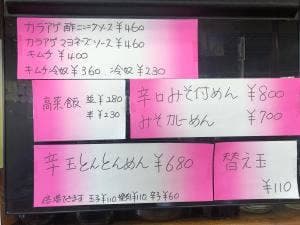 カラアゲ酢ニンニクソース ¥460
カラアゲマヨネーズソース ¥460
キムチ ¥400
キムチ冷奴 ¥360 冷奴 ¥230
高菜飯 並 ¥280
半 ¥230
辛口みそ付めん ¥800
みそカレーめん ¥700
辛玉とんとんめん ¥680
玉子 ¥110 ¥110 辛子 ¥60
替え玉
¥110